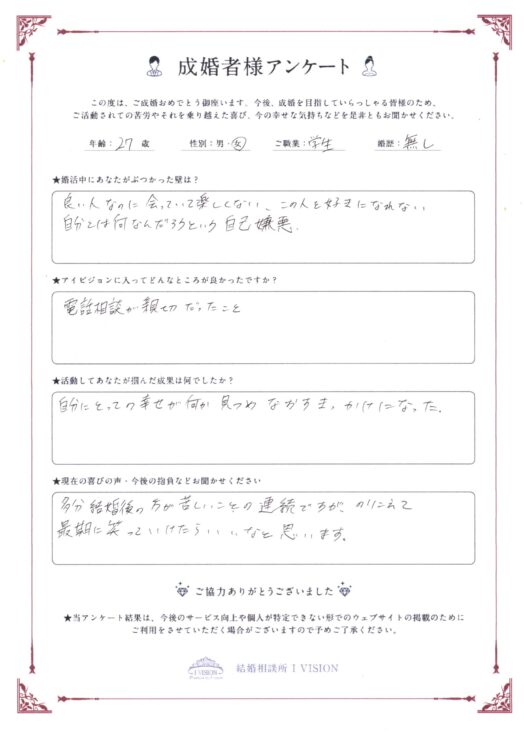 成婚者様アンケート
この度は、ご成婚おめでとう御座います。今後、成婚を目指していらっしゃる皆様のため、
ご活動されての苦労やそれを乗り越えた喜び、今の幸せな気持ちなどを是非ともお聞かせください。
年齢：27 歳 性別：男・女 ご職業：学生 婚歴：無し
★婚活中にあなたがぶつかった壁は？
良い人なのに会っていて楽しくない、この人を好きになれない
自分とは何なんだろうという自己嫌悪.
★アイビジョンに入ってどんなところが良かったですか？
電話相談が親切だったこと
★活動してあなたが掴んだ成果は何でしたか？
自分にとっての幸せが何か見つめなおすきっかけになった.
★現在の喜びの声・今後の抱負などお聞かせください
多分結婚後の方が苦しいことの連続ですが、のりこえて
最期に笑っていけたらいいなと思います。
ご協力ありがとうございました
★当アンケート結果は、今後のサービス向上や個人が特定できない形でのウェブサイトの掲載のために
ご利用をさせていただく場合がございますので予めご了承ください。
I VISION
結婚相談所 I VISION